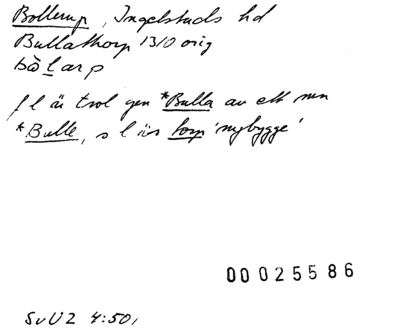 Bollerup, Ingelstads hd
Bullathorp 1310 orig
bòlarp
f l är trol gen *Bulla av ett mn
*Bulle, s l är torp 'nybygge'
00025586
SvU2 4:50,